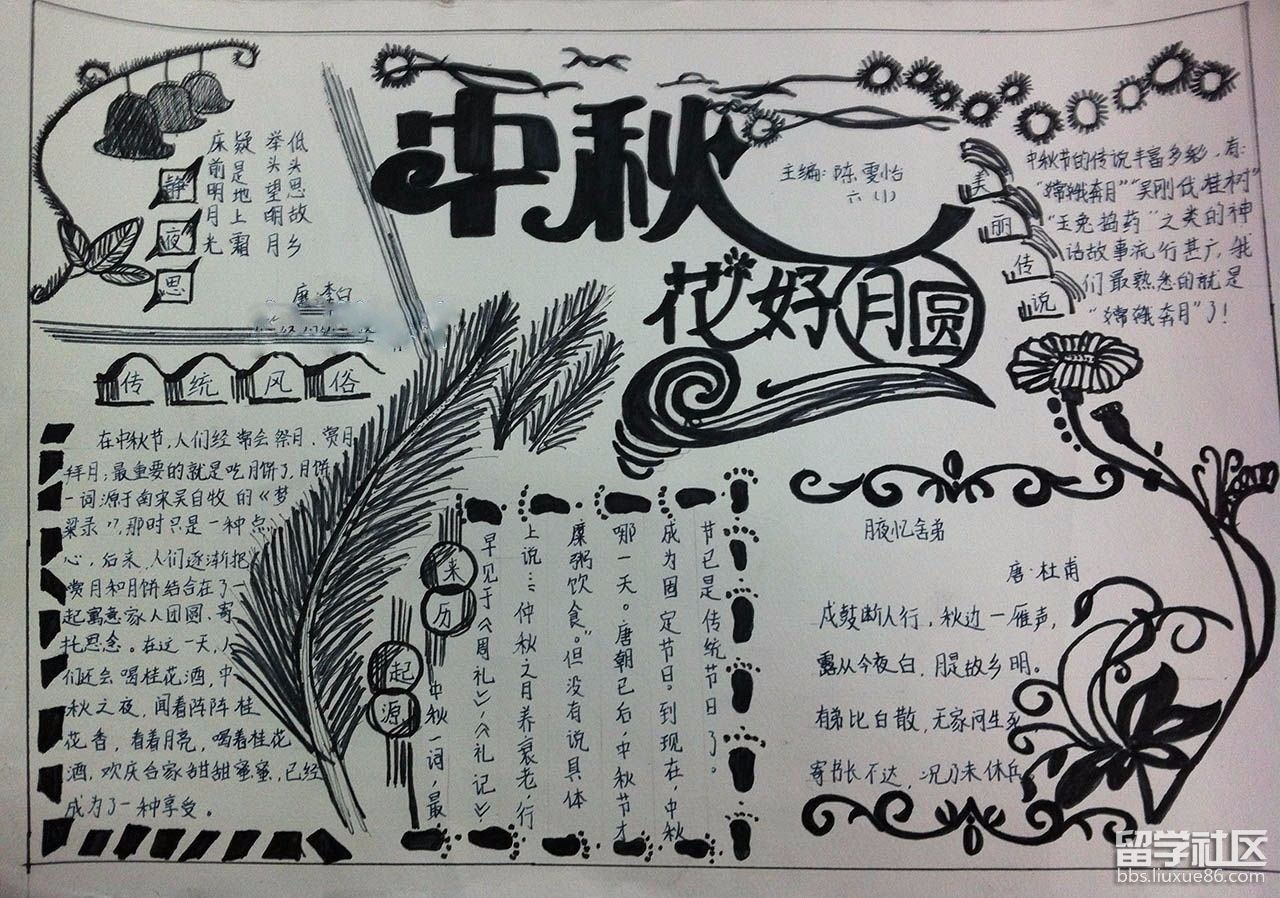 中秋
花好月圆
主编:陈雯怡
六(1)
静夜思
床前明月光
疑是地上霜
举头望明月
低头思故乡
唐·李白
美丽传说
中秋节的传说丰富多彩，有:
“嫦娥奔月”“吴刚伐桂树”
“玉兔捣药”之类的神
话故事流行甚广,我
们最熟悉的就是
“嫦娥奔月”了!
传统风俗
在中秋节,人们经常会祭月、赏月
拜月;最重要的就是吃月饼了,月饼
一词源于南宋吴自牧的《梦
粱录》,那时只是一种点
心，后来,人们逐渐把
赏月和月饼结合在了一
起寓意家人团圆、寄
托思念。在这一天,人
们还会喝桂花酒,中
秋之夜,闻着阵阵桂
花香，看着月亮，喝着桂花
酒,欢庆合家甜甜蜜蜜,已经
成为了一种享受。
起源
来历
中秋一词,最
早见于《周礼》,《礼记》
上说:“仲秋之月养衰老,行
糜粥饮食。”但没有说具体
哪一天。唐朝已后,中秋节才
成为固定节日。到现在,中秋
节已是传统节日了。
月夜忆舍弟
唐·杜甫
戍鼓断人行，秋边一雁声,
露从今夜白，月是故乡明。
有弟比白散，无家问生死
寄书长不达，况乃未休兵。
留学社区
bbs.liuxue86.com